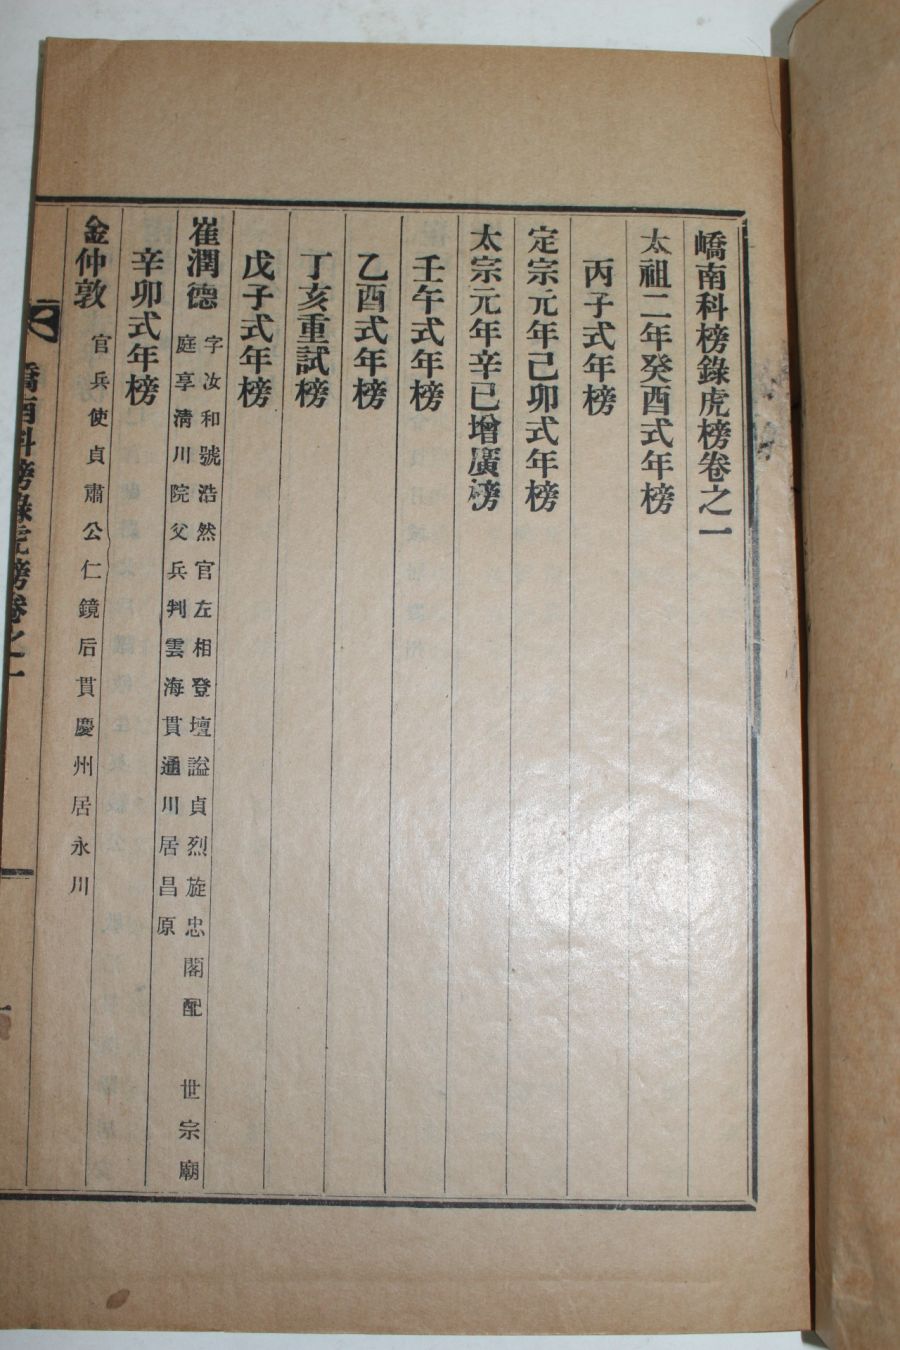 嶠南科榜錄虎榜卷之一
太祖二年癸酉式年榜
丙子式年榜
定宗元年己卯式年榜
太宗元年辛巳增廣榜
壬午式年榜
乙酉式年榜
丁亥重試榜
戊子式年榜
崔潤德 字汝和號浩然官左相登壇謚貞烈旋忠閣配 世宗廟
庭享淸川院父兵判雲海貫通川居昌原
辛卯式年榜
金仲敦 官兵使貞肅公仁鏡后貫慶州居永川
嶠南科榜錄虎榜卷之一
一